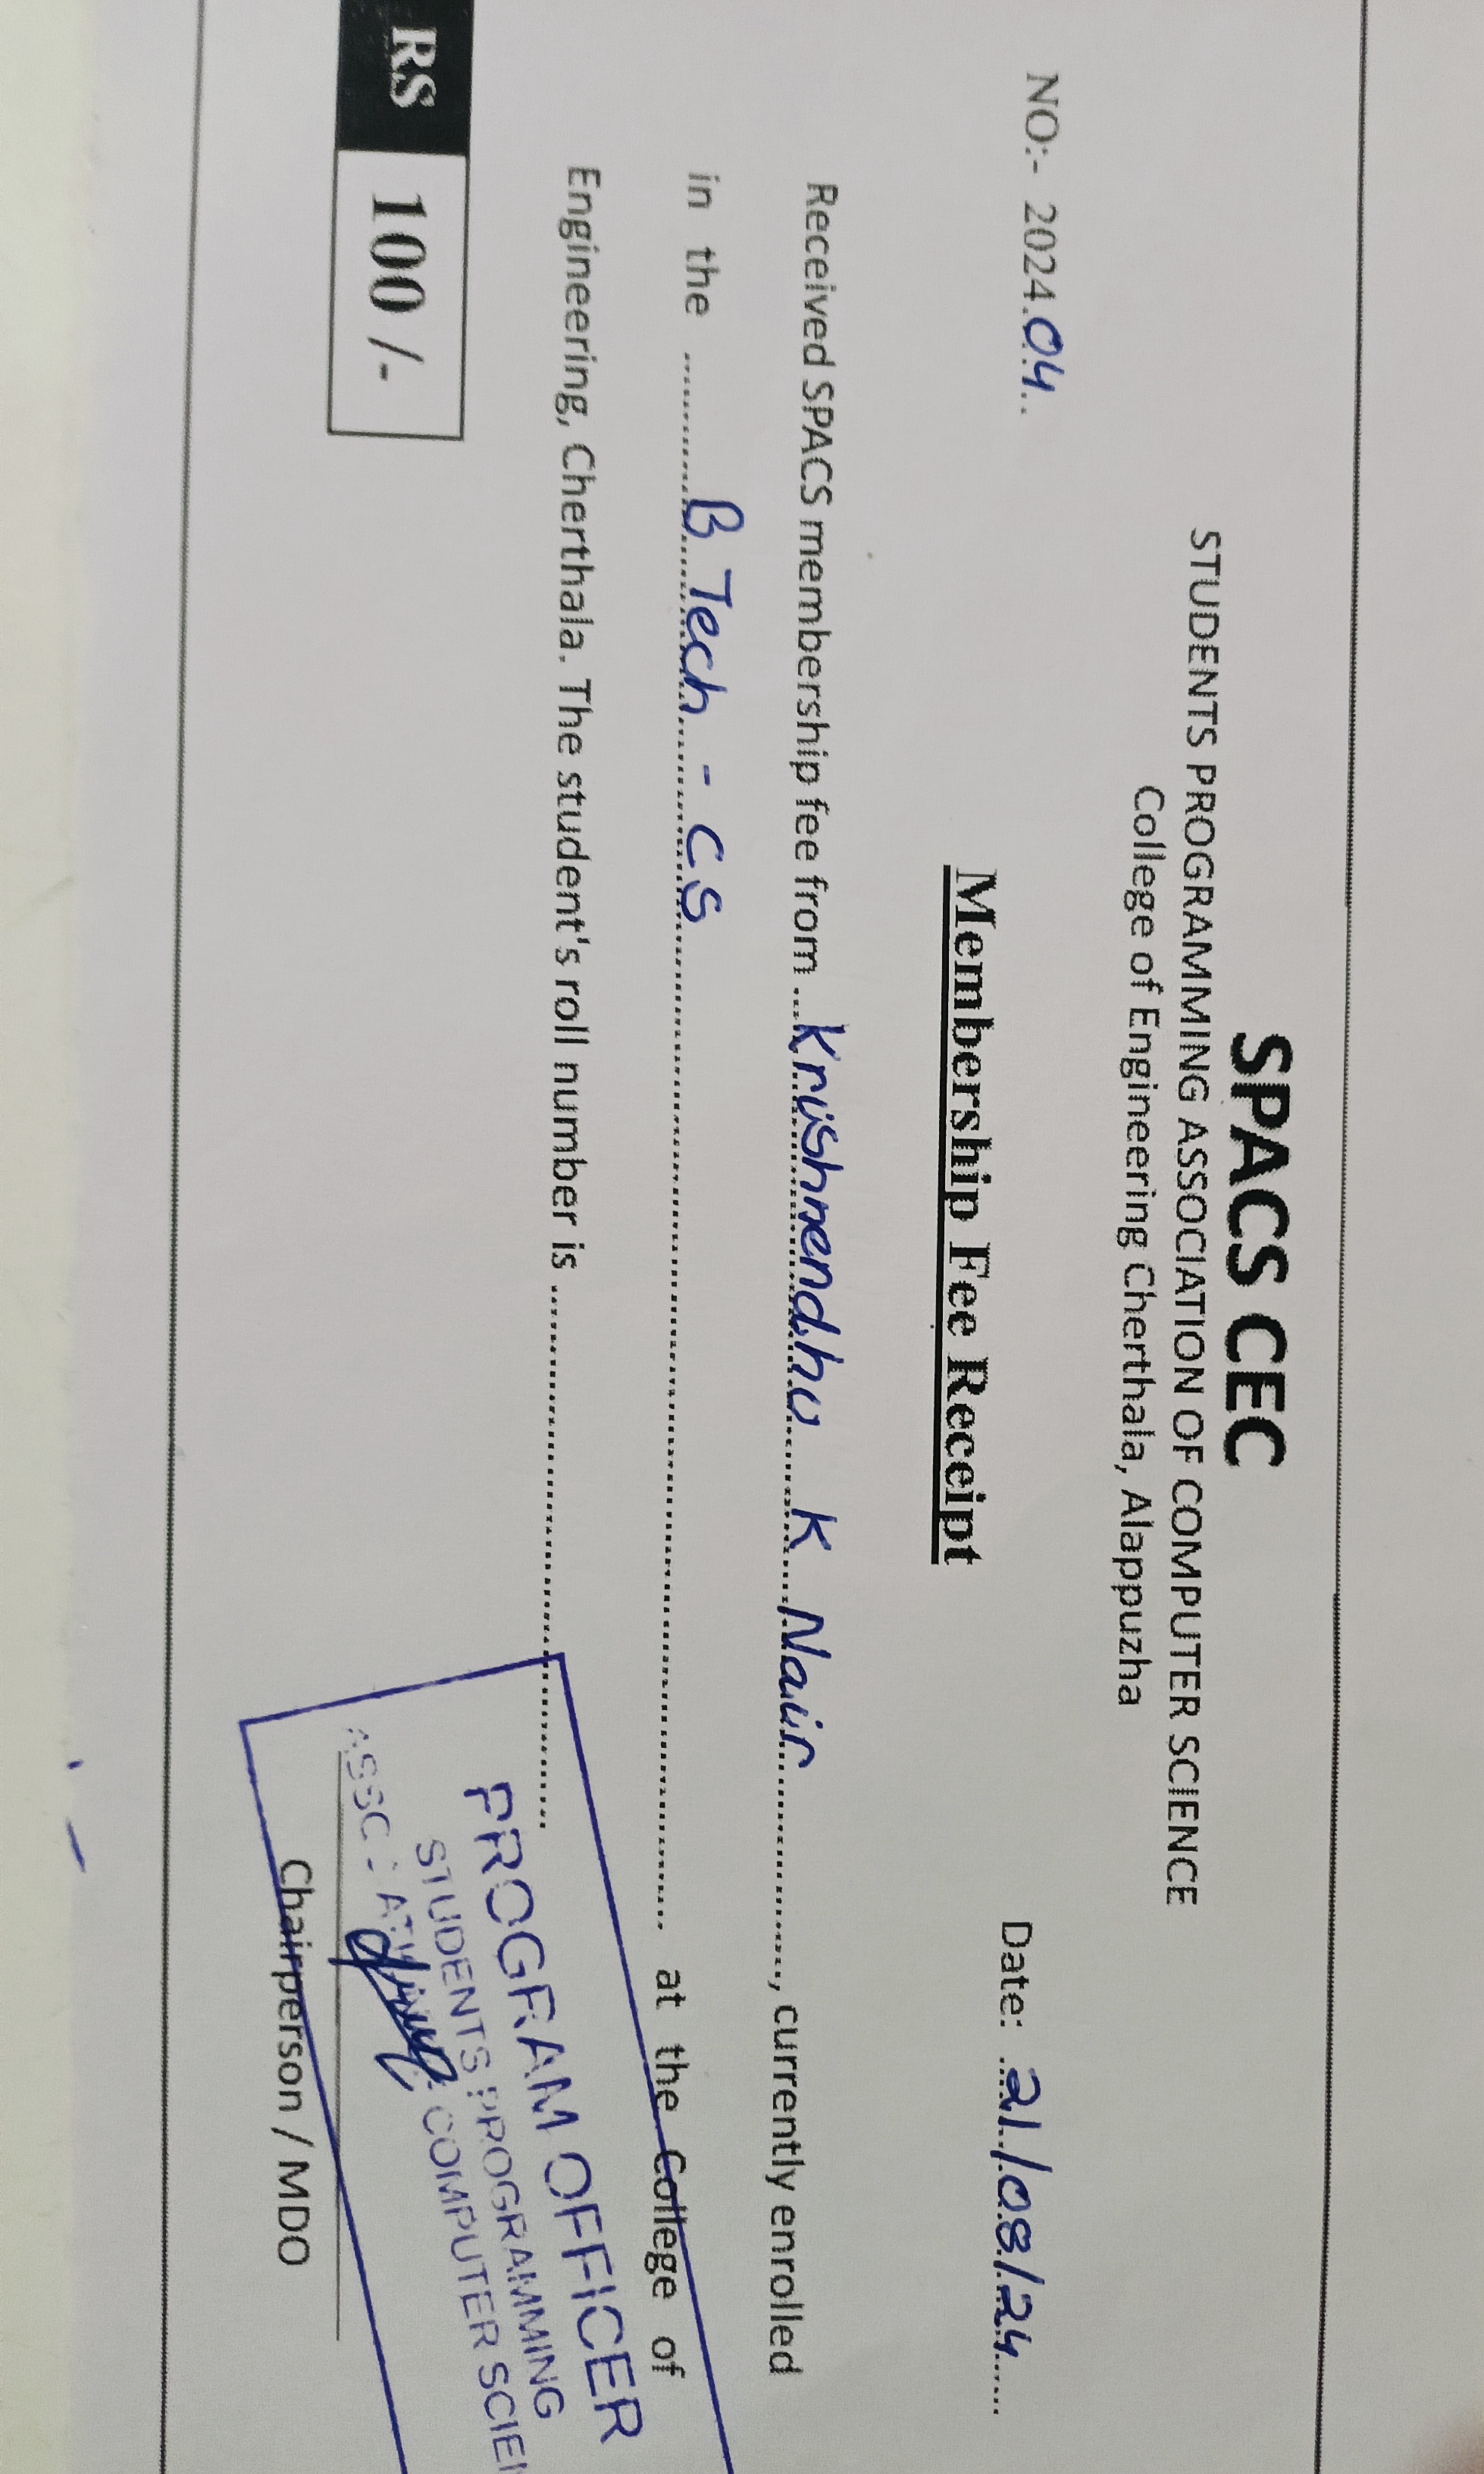 SPACS CEC
STUDENTS PROGRAMMING ASSOCIATION OF COMPUTER SCIENCE
College of Engineering Cherthala, Alappuzha
NO:- 2024.04.. Date: 21/08/24
Membership Fee Receipt
Received SPACS membership fee from Krishnendhu K Nair, currently enrolled
in the B Tech - CS at the College of
Engineering, Cherthala. The student's roll number is
RS 100 /-
PROGRAM OFFICER
STUDENTS PROGRAMMING
COMPUTER SCIEN
Chairperson / MDO